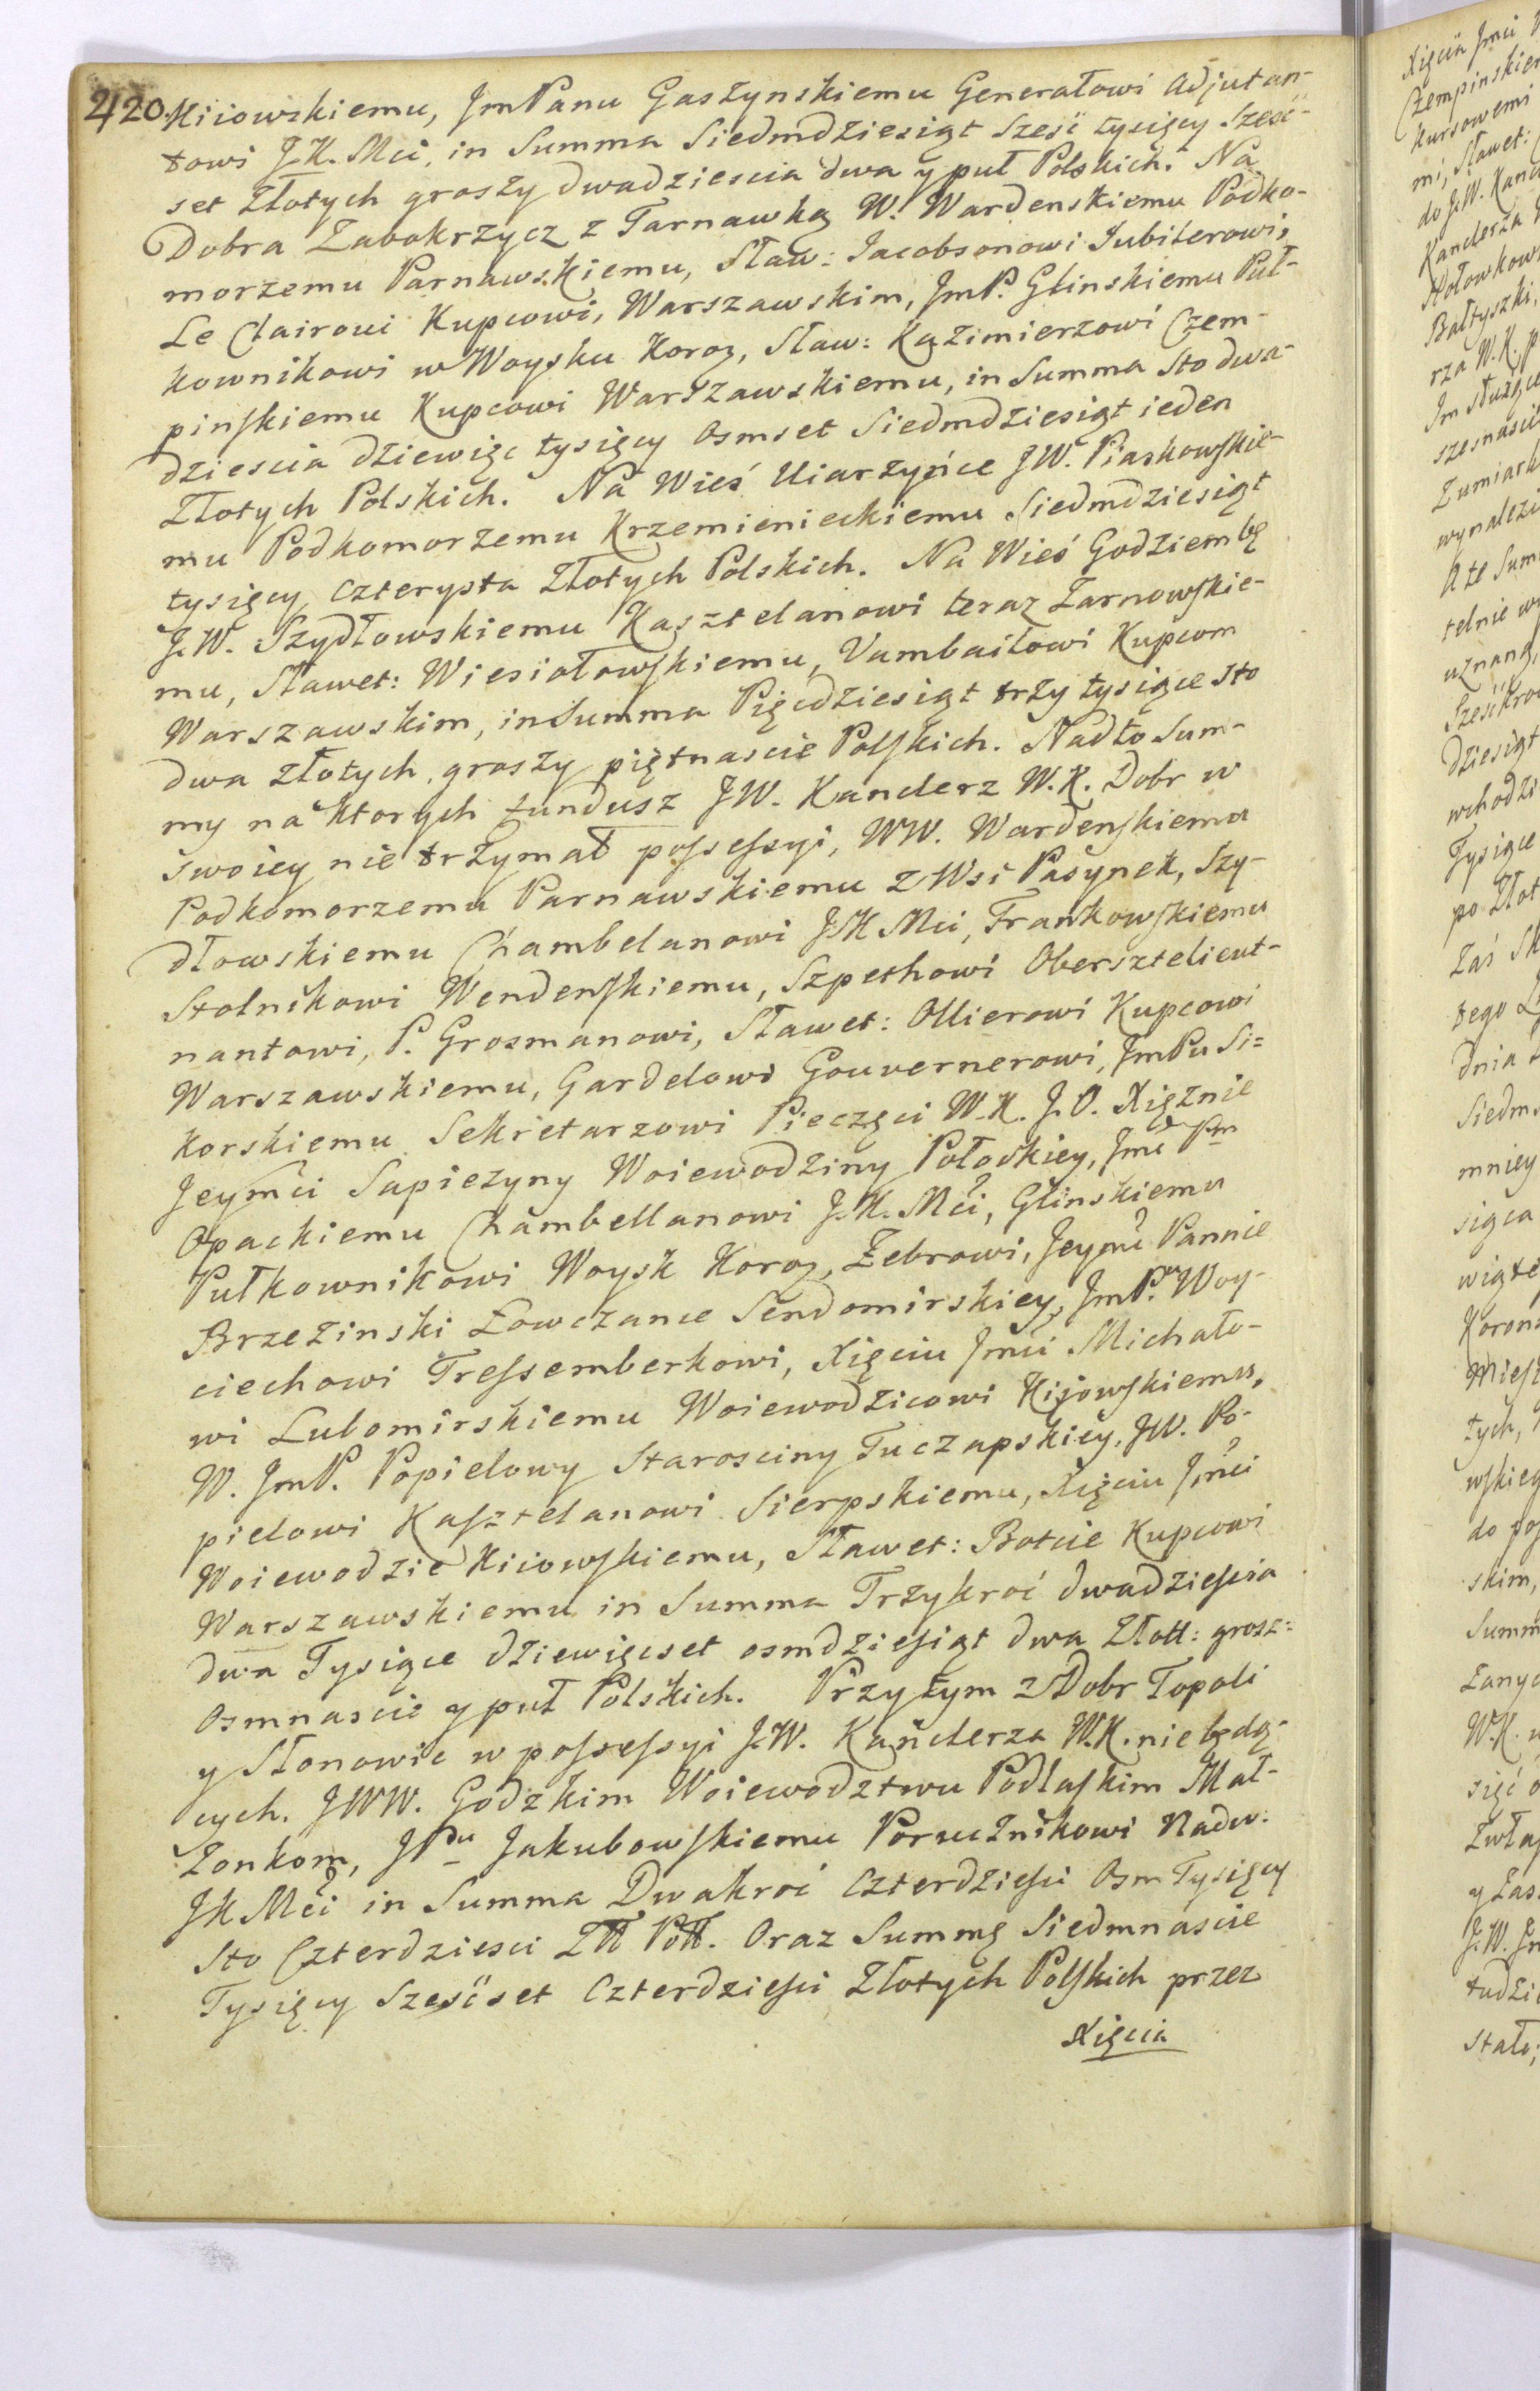 420. Kiiowskiemu, JmPanu Gaszynskiemu Generałowi Adjutan-
towi J.K. Mci, in Summa Siedmdziesiąt Sześć tysięcy Sześć-
set Złotych groszy dwadziescia dwa y puł Polskich. Na
Dobra Zabokrzycz z Tarnawką W. Wardenskiemu Podko-
morzemu Parnawskiemu, Sław: Jacobsonowi Jubilerowi,
Le Clairowi Kupcowi, Warszawskim, JmP. Glinskiemu Puł-
kownikowi w Woysku Koroą, Sław: Kazimierzowi Czem-
pinskiemu Kupcowi Warszawskiemu, in Summa Sto dwa-
dziescia dziewięc tysięcy Osmset Siedmdziesiąt ieden
Złotych Polskich. Na Wieś Uiarzyńce JW. Piaskowskie-
mu Podkomorzemu Krzemienieckiemu Siedmdziesiąt
tysięcy czterysta Złotych Polskich. Na Wieś Godziembę
J.W. Szydłowskiemu Kasztelanowi teraz Zarnowskie-
mu, Sławet: Wiesiołowskiemu, Vambaiłowi Kupcom
Warszawskim, in Summa Pięcdziesiąt trzy tysiące sto
dwa złotych, groszy piętnascie Polskich. Nadto Sum-
my na ktorych fundusz JW. Kanclerz W.K. Dobr w
swoiey nie trzymał possessyi, WW. Wardenskiemu
Podkomorzemu Parnawskiemu z Wsi Pasynek, Szy-
dłowskiemu Chambelanowi JK Mci, Frankowskiemu
Stolnikowi Wendenskiemu, Szpethowi Obersztelieut-
nantowi, P. Grosmanowi, Sławet: Ollierowi Kupcowi
Warszawskiemu, Gardelowi Gouvernerowi, JmPu Si=
korskiemu Sekretarzowi Pieczęci W.K. J.O. Xiężnie
Jeymci Sapiezyny Woiewodziny Połockiey, Jmć Pm
Opackiemu Chambellanowi J.K. Mci, Glinskiemu
Pułkownikowi Woysk Koroą, Zebrowi, Jeymć Pannie
Brzezinski Łowczance Sendomirskiey, JmP. Woy-
ciechowi Tressemberkowi, Xięciu Jmci Michało-
wi Lubomirskiemu Woiewodzicowi Kijowskiemu,
W. JmP. Popielowy Starosciny Tuczapskiey, JW. Po-
pielowi Kasztelanowi Sierpskiemu, Xięciu Jmci
Woiewodzie Kiiowskiemu, Sławet: Botcie Kupcowi
Warszawskiemu in Summa Trzykroć dwadziescia
dwa Tysiące dziewięcset osmdziesiąt dwa Złott: grosz:
Osmnascie y puł Polskich. Przytym z Dobr Topoli
y Słonowic w possessyi J.W. Kanclerza W.K. nie będą-
cych. JWW. Godzkim Woiewodztwu Podlaskim Mał-
zonkom, JPu Jakubowskiemu Porucznikowi Nadw:
JK Mci in Summa Dwakroć Czterdziesci Osm Tysięcy
Sto Czterdziesci Ztt Pott. Oraz Summę Siedmnascie
Tysięcy Sześćset Czterdziesci Złotych Polskich przez
Xięcia